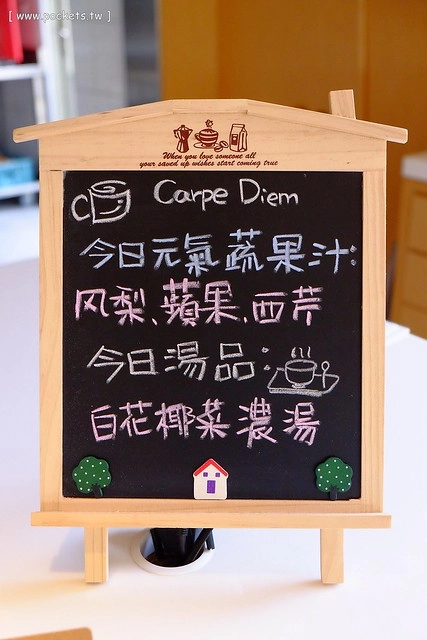 [ www.pockets.tw ]
When you love someone all
your saved up wishes start coming true
Carpe Diem
今日元氣蔬果汁:
风梨、蘋果、西芹
今日湯品:
白花椰菜濃湯